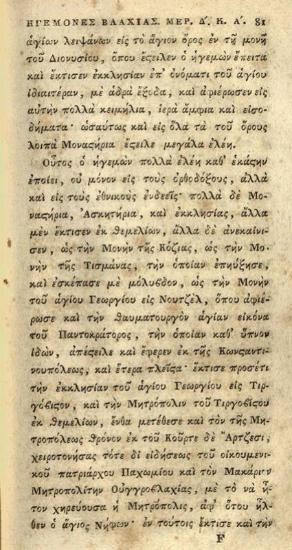 ΗΓΕΜΟΝΕΣ ΒΛΑΧΙΑΣ. ΜΕΡ. Δ΄. Κ. Α΄. 81
ἁγίων λειψάνων εἰς τὸ ἅγιον ὄρος ἐν τῇ μονῇ
τοῦ Διονυσίου, ὅπου ἔξειλεν ὁ ἡγεμὼν ἔπειτα
καὶ ἔκτισεν ἐκκλησίαν ἐπ᾿ ὀνόματι τοῦ ἁγίου
ἰδιαιτέραν, μὲ ἁδρὰ ἔξοδα, καὶ ἀφιέρωσεν εἰς
αὐτὴν πολλὰ κειμήλια, ἱερὰ ἄμφια καὶ εἰσο-
δήματα· ὡσαύτως καὶ εἰς ὅλα τὰ τοῦ ὄρους
λοιπὰ Μοναςήρια ἔξειλε μεγάλα ἐλέη.
Οὗτος ὁ ἡγεμὼν πολλὰ ἐλέη καθ᾿ ἑκάςην
ἐποίει, οὐ μόνον εἰς τοὺς ὀρθοδόξους, ἀλλὰ
καὶ εἰς τοὺς ἐθνικοὺς ἐνδεεῖς· πολλὰ δὲ Μο-
ναςήρια, Ἀσκητήρια, καὶ ἐκκλησίας, ἄλλα
μὲν ἔκτισεν ἐκ θεμελίων, ἄλλα δὲ ἀνεκαίνι-
σεν, ὡς τὴν Μονὴν τῆς Κόζιας, ὡς τὴν Μο-
νὴν τῆς Τισμάνας, τὴν ὁποίαν ἐπηύξησε,
καὶ ἐσκέπασε μὲ μόλυβδον, ὡς τὴν Μονὴν
τοῦ ἁγίου Γεωργίου εἰς Νουτζὲλ, ὅπου ἀφιέ-
ρωσε καὶ τὴν θαυματουργὸν ἁγίαν εἰκόνα
τοῦ Παντοκράτορος, τὴν ὁποίαν καθ᾿ ὕπνον
ἰδὼν, ἀπέςειλε καὶ ἔφερεν ἐκ τῆς Κωνςαντι-
νουπόλεως, καὶ ἕτερα πλεῖςα· ἔκτισε προσέτι
τὴν ἐκκλησίαν τοῦ ἁγίου Γεωργίου εἰς Τιρ-
γόβιςον, καὶ τὴν Μητρόπολιν τοῦ Τιργοβίςου
ἐκ θεμελίων, ἔνθα μετέθεσε καὶ τὸν τῆς Μη-
τροπόλεως θρόνον ἐκ τοῦ Κούρτε δὲ Ἄρτζεσι,
χειροτονήσας τότε δι᾿ εἰδήσεως τοῦ οἰκουμενι-
κοῦ πατριάρχου Παχωμίου καὶ τὸν Μακάριον
Μητροπολίτην Οὑγγροβλαχίας, μὲ τὸ νὰ ἦ-
τον χηρεύουσα ἡ Μητρόπολις, ἀφ᾿ ὅτου ἦλ-
θεν ὁ ἅγιος Νήφων· ἐν τούτοις ἔκτισε καὶ τὴν
F